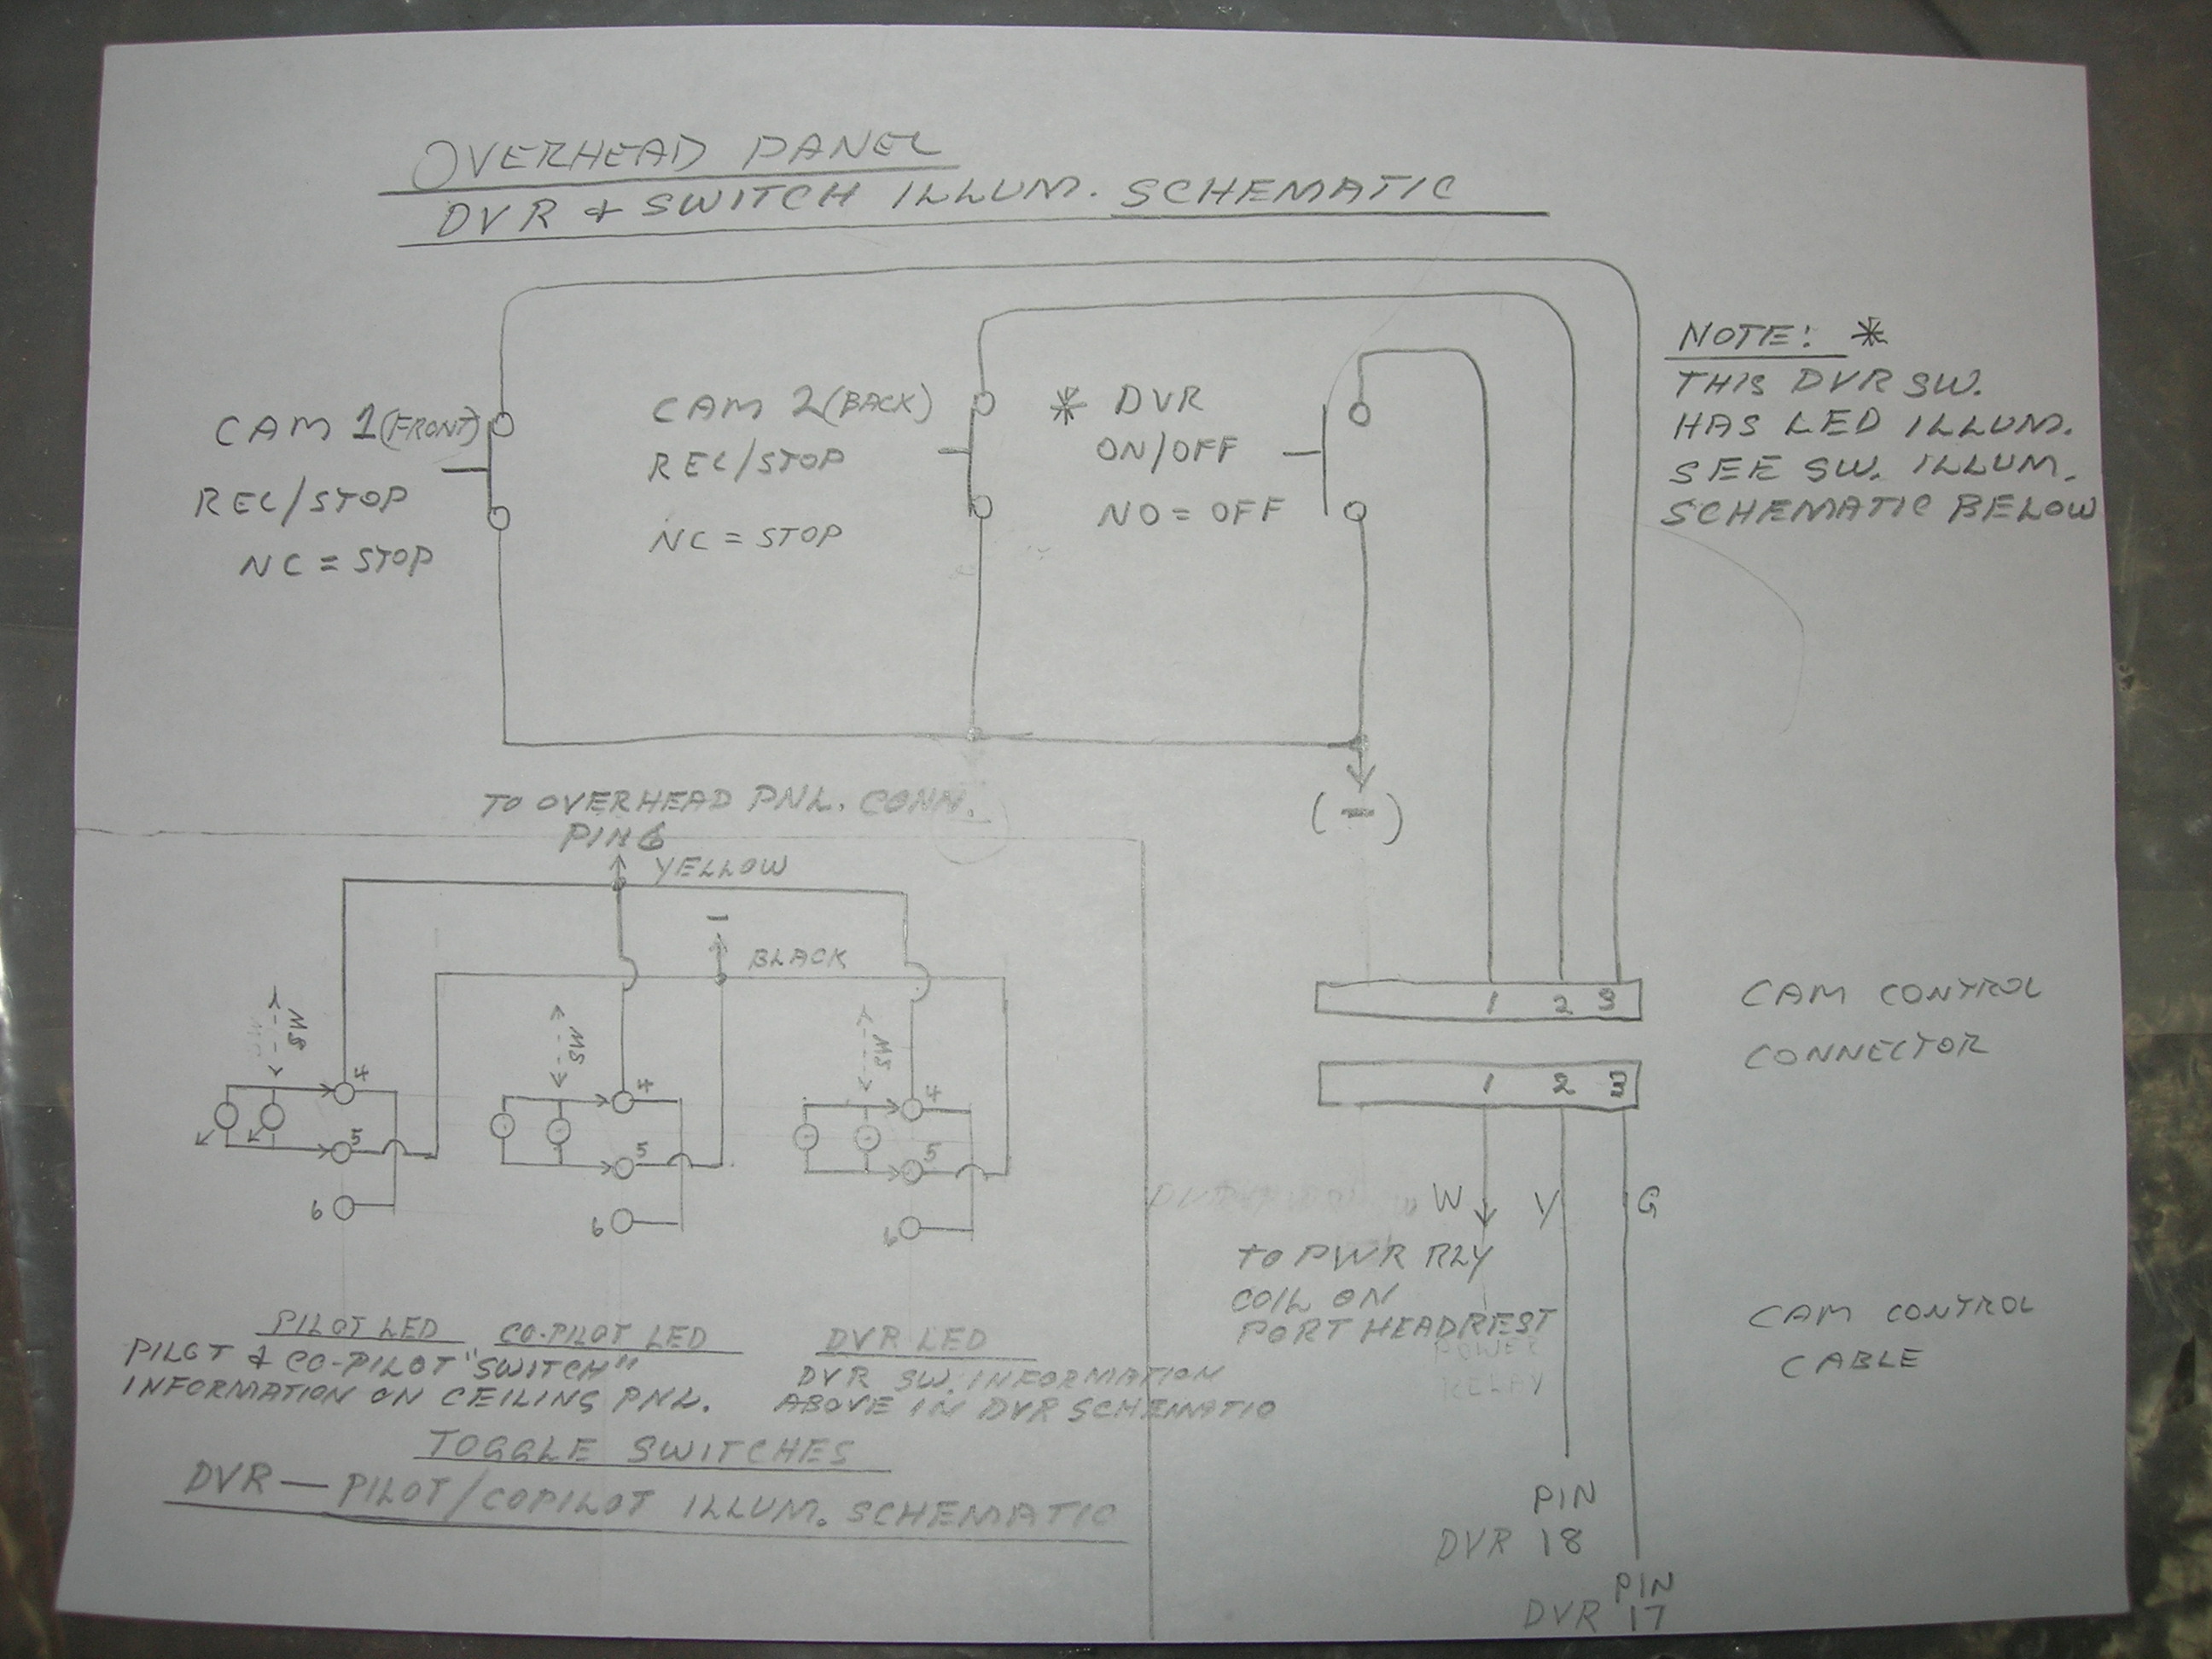 OVERHEAD PANEL
DVR & SWITCH ILLUM. SCHEMATIC
CAM 1 (FRONT)
REC/STOP
NC = STOP
CAM 2 (BACK)
REC/STOP
NC = STOP
* DVR
ON/OFF
NO = OFF
NOTE: *
THIS DVR SW.
HAS LED ILLUM.
SEE SW. ILLUM.
SCHEMATIC BELOW
(-)
TO OVERHEAD PNL. CONN.
PIN 6
YELLOW
-
BLACK
SW
SW
SW
4
5
6
4
5
6
4
5
6
PILOT LED
CO-PILOT LED
DVR LED
PILOT & CO-PILOT "SWITCH"
INFORMATION ON CEILING PNL.
DVR SW. INFORMATION
ABOVE IN DVR SCHEMATIC
TOGGLE SWITCHES
DVR — PILOT/COPILOT ILLUM. SCHEMATIC
1 2 3
CAM CONTROL
CONNECTOR
1 2 3
W Y G
TO PWR RLY
COIL ON
PORT HEADREST
POWER
RELAY
CAM CONTROL
CABLE
PIN
DVR 18
PIN
DVR 17